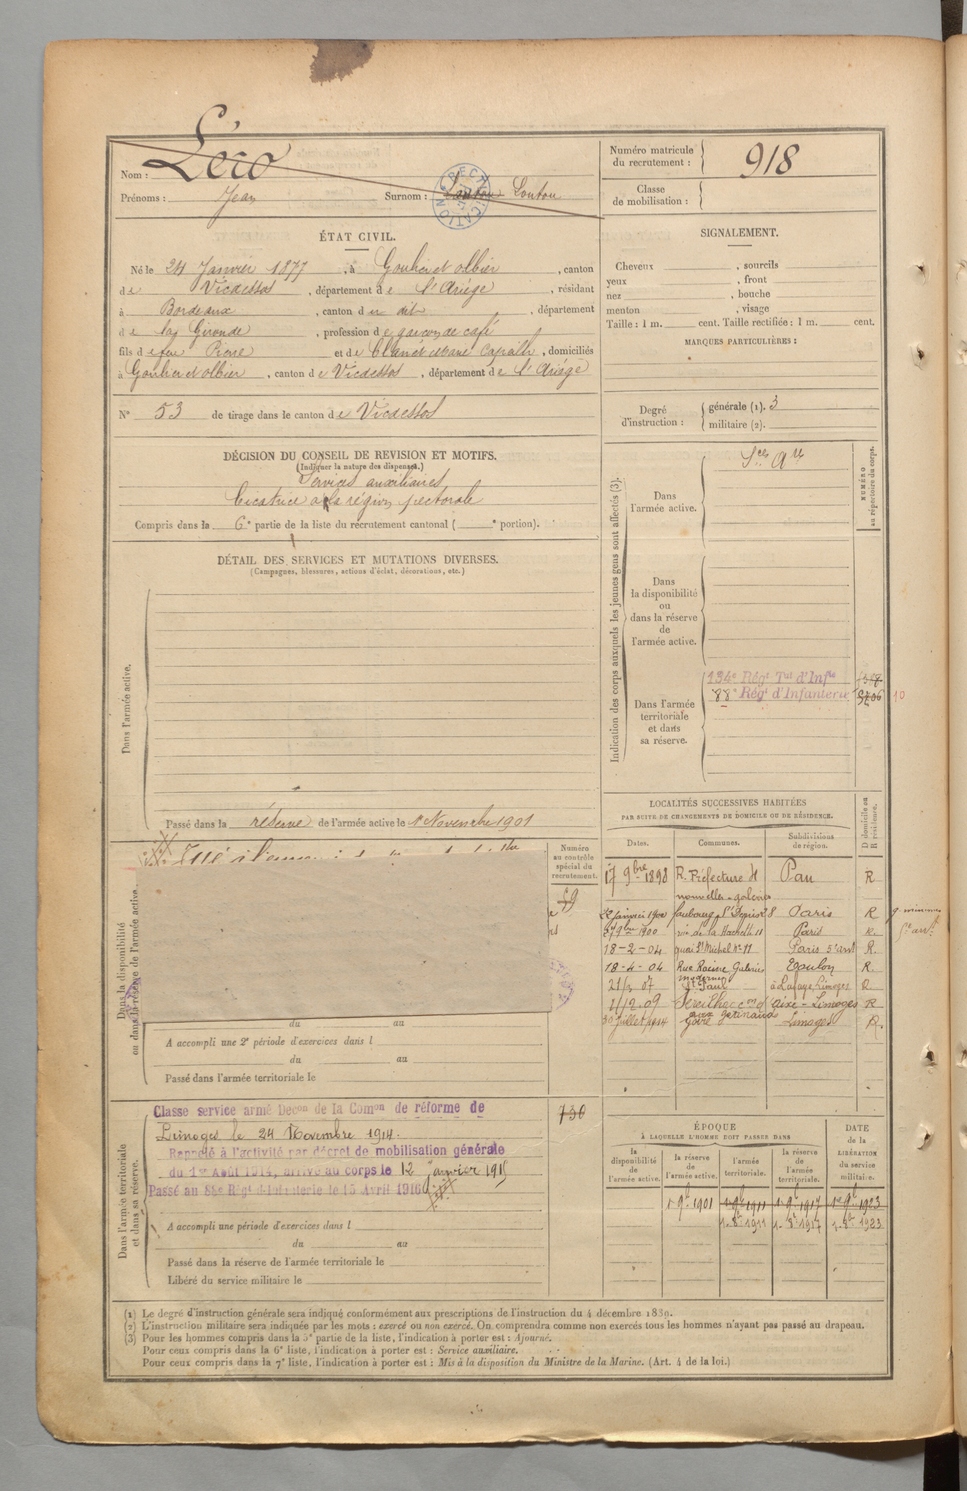 Nom : Léro
Prénoms : Jean Surnom : Loutou Loutou
RECTIFICATION
Numéro matricule du recrutement : 918
Classe de mobilisation :
ÉTAT CIVIL.
Né le 24 Janvier 1877, à Goulier et Olbier, canton
de Vicdessos, département de l'Ariège, résidant
à Bordeaux, canton du dit, département
de la Gironde, profession de garçon de café
fils de feu Pierre et de domiciliés
à Goulier et Olbier, canton de Vicdessos, département de l'Ariège
N° 53 de tirage dans le canton de Vicdessos
SIGNALEMENT.
Cheveux , sourcils
yeux , front
nez , bouche
menton , visage
Taille : 1 m. cent. Taille rectifiée : 1 m. cent.
MARQUES PARTICULIÈRES :
Degré d'instruction : générale (1). 3
militaire (2).
DÉCISION DU CONSEIL DE REVISION ET MOTIFS.
(Indiquer la nature des dispenses.)
Services auxiliaires
Cicatrice à la région pectorale
Compris dans la 6e partie de la liste du recrutement cantonal ( e portion).
DÉTAIL DES SERVICES ET MUTATIONS DIVERSES.
(Campagnes, blessures, actions d'éclat, décorations, etc.)
Dans l'armée active.
Passé dans la réserve de l'armée active le 1er Novembre 1901
Indication des corps auxquels les jeunes gens sont affectés (3).
NUMÉRO au répertoire du corps.
Dans l'armée active.
Sce Are
Dans la disponibilité ou dans la réserve de l'armée active.
Dans l'armée territoriale et dans sa réserve.
134e Régt Tal d'Infie
88e Régt d'Infanterie
10
LOCALITÉS SUCCESSIVES HABITÉES
PAR SUITE DE CHANGEMENTS DE DOMICILE OU DE RÉSIDENCE.
Dates. Communes. Subdivisions de région. D domicile ou R résidence.
17 9bre 1898 R. Préfecture Pau R
nouvelles-galeries
22 janvier 1900 faubourg St Denis 28 Paris R
1900 rue de la 11 Paris R.
18-2-04 quai St Michel No 11 Paris R.
18-4-04 Rue Racine Toulon R.
21/ 07 St Paul Limoges R
1/12.09 aixe-Limoges R
30 Juillet 1914 Limoges R.
Numéro au contrôle spécial du recrutement.
Dans la disponibilité ou dans la réserve de l'armée active.
du au
A accompli une 2e période d'exercices dans l
du au
Passé dans l'armée territoriale le
Dans l'armée territoriale et dans sa réserve.
Classe service armé Decon de la Comon de réforme de
Limoges le 24 Novembre 1914.
Rappelé à l'activité par décret de mobilisation générale
du 1er Août 1914, arrivé au corps le 12 janvier 1915
Passé au 88e Régt d'Infanterie le 15 Avril 1916
730
A accompli une période d'exercices dans l
du au
Passé dans la réserve de l'armée territoriale le
Libéré du service militaire le
ÉPOQUE
À LAQUELLE L'HOMME DOIT PASSER DANS
la disponibilité de l'armée active. la réserve de l'armée active. l'armée territoriale. la réserve de l'armée territoriale. DATE de la LIBÉRATION du service militaire.
1 9b 1901 1 9b 1911 1 9b 1917 1er 9b 1923
1. 8b 1911 1. 8b 1917 1. 8b 1923
(1) Le degré d'instruction générale sera indiqué conformément aux prescriptions de l'instruction du 4 décembre 1889.
(2) L'instruction militaire sera indiquée par les mots : exercé ou non exercé. On comprendra comme non exercés tous les hommes n'ayant pas passé au drapeau.
(3) Pour les hommes compris dans la 5e partie de la liste, l'indication à porter est : Ajourné.
Pour ceux compris dans la 6e liste, l'indication à porter est : Service auxiliaire.
Pour ceux compris dans la 7e liste, l'indication à porter est : Mis à la disposition du Ministre de la Marine. (Art. 4 de la loi.)